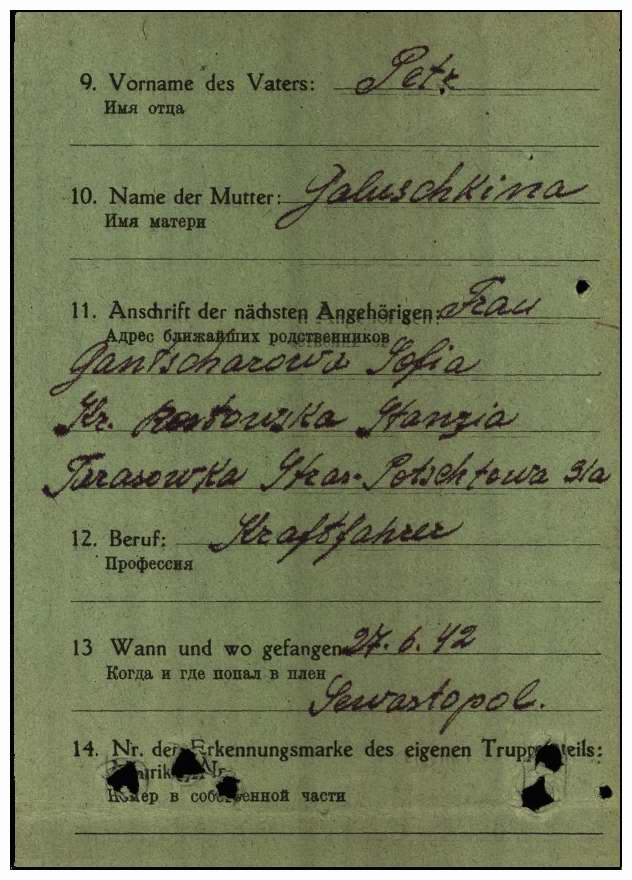 9. Vorname des Vaters: Petr
Имя отца
10. Name der Mutter: Galuschkina
Имя матери
11. Anschrift der nächsten Angehörigen: Frau
Адрес ближайших родственников
Gantscharowa Sofia
Kr. Rostowzka Stanzia
Tarasowka Stras-Potschtowa 31a
12. Beruf: Kraftfahrer
Профессия
13 Wann und wo gefangen 27. 6. 42
Когда и где попал в плен
Sewastopol.
14. Nr. der Erkennungsmarke des eigenen Truppenteils:
Nr.
Номер в собственной части